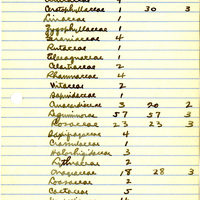 Ceratophyllaceae 1 30 3
Linaceae 1
Zygophyllaceae 1
Geraniaceae 4
Rutaceae 1
Elaeagnaceae 1
Celastraceae 2
Rhamnaceae 4
Vitaceae 2
Sapindaceae 1
Anacardiaceae 3 20 2
Leguminosae 57 57 3
Rosaceae 23 23 3
Saxifragaceae 4
Crassulaceae 1
Haloragidaceae 3
Lythraceae 2
Onagraceae 18 28 3
Loasaceae 2
Cactaceae 5